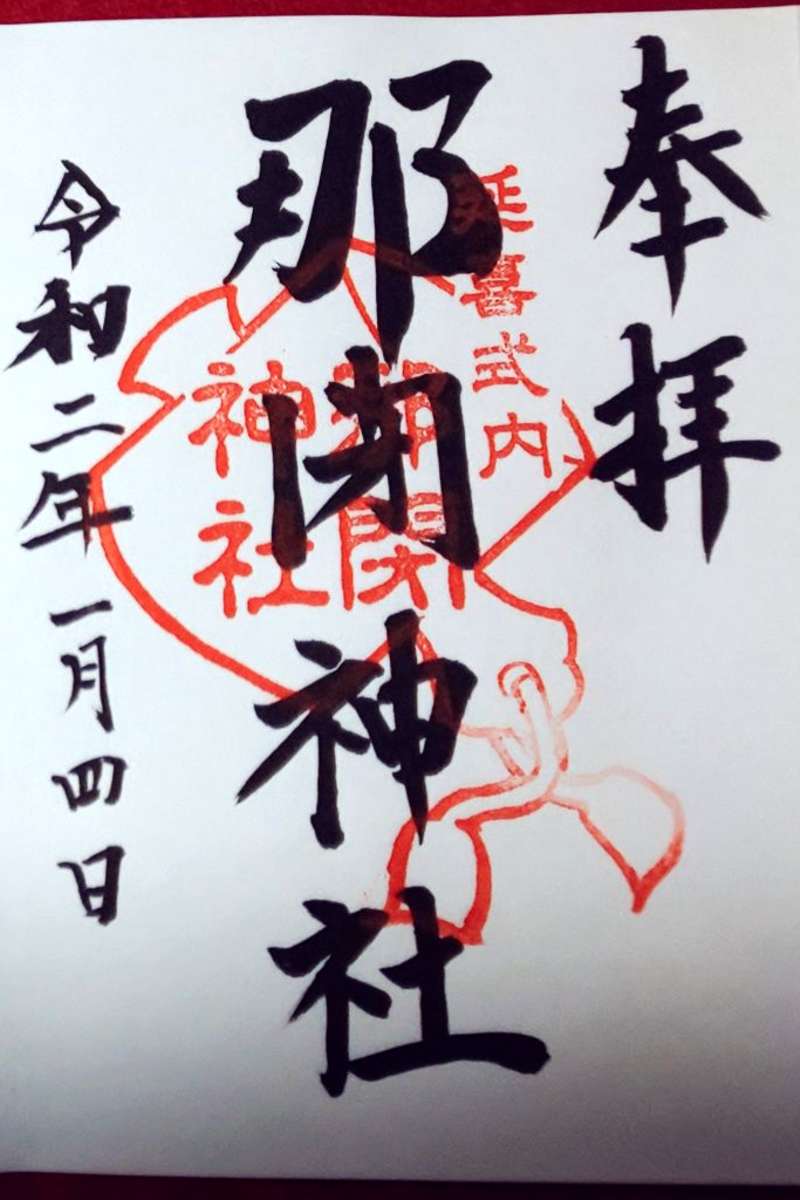 奉拝
延喜式内
那閇神社
那閇
神社
令和二年一月四日